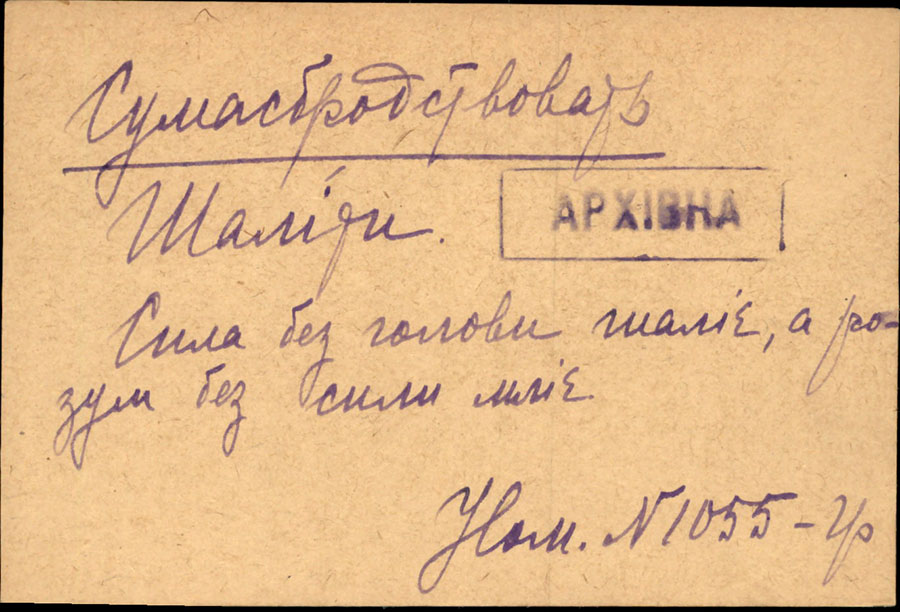 Сумасбродствовать
Шаліти.
АРХІВНА
Сила без голови шаліє, а ро-
зум без сили мліє
Ном. N 1055 – Ур